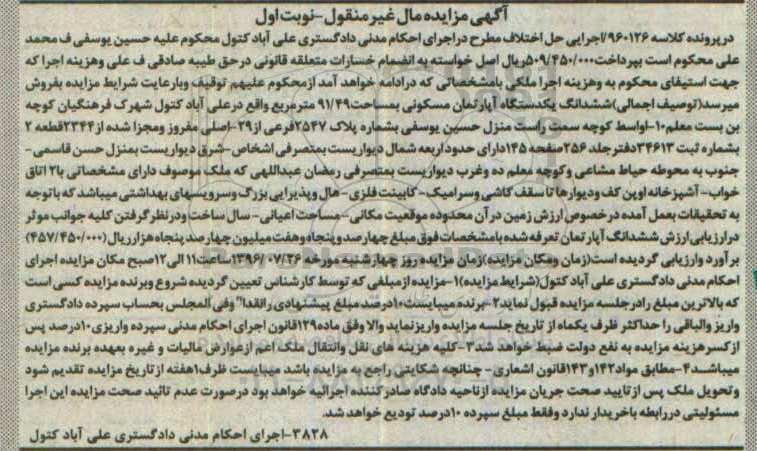 آگهی مزایده مال غیر منقول-نوبت اول
در پرونده کلاسه ۹۶۰۱۲۶/اجرایی حل اختلاف مطرح در اجرای احکام مدنی دادگستری علی آباد کتول محکوم علیه حسین یوسفی ف محمد
علی محکوم است بپرداخت ۵۰۹/۴۵۰/۰۰۰ریال اصل خواسته به انضمام خسارات متعلقه قانونی در حق طیبه صادقی ف علی وهزینه اجرا که
جهت استیفای محکوم به وهزینه اجرا ملکی بامشخصاتی که درادامه خواهد آمد ازمحکوم علیهم توقیف وبارعایت شرایط مزایده بفروش
میرسد(توصیف اجمالی)ششدانگ یکدستگاه آپارتمان مسکونی بمساحت ۹۱/۴۹ مترمربع واقع درعلی آباد کتول شهرک فرهنگیان کوچه
بن بست معلم۱۰-اواسط کوچه سمت راست منزل حسین یوسفی بشماره پلاک ۲۵۴۷فرعی از۲۹-اصلی مفروز ومجزا شده از۲۳۴۴قطعه ۲
بشماره ثبت ۳۴۶۱۳دفترجلد ۲۵۶صفحه ۱۴۵دارای حدوداربعه شمال دیواریست بمتصرفی اشخاص-شرق دیواریست بمنزل حسن قاسمی-
جنوب به محوطه حیاط مشاعی وکوچه معلم ده وغرب دیواریست بمتصرفی رمضان عبداللهی که ملک موصوف دارای مشخصاتی با۲ اتاق
خواب-آشپزخانه اوپن کف ودیوارها تا سقف کاشی وسرامیک-کابینت فلزی-هال وپذیرایی بزرگ وسرویسهای بهداشتی میباشد که باتوجه
به تحقیقات بعمل آمده درخصوص ارزش زمین در آن محدوده موقعیت مکانی-مساحت اعیانی-سال ساخت ودرنظرگرفتن کلیه جوانب موثر
درارزیابی ارزش ششدانگ آپارتمان تعرفه شده بامشخصات فوق مبلغ چهارصدوپنجاه وهفت میلیون چهارصد پنجاه هزارریال(۴۵۷/۴۵۰/۰۰۰)
برآورد وارزیابی گردیده است(زمان ومکان مزایده)زمان مزایده روز چهارشنبه مورخه ۱۳۹۶/۰۷/۲۶ساعت۱۱الی۱۲صبح مکان مزایده اجرای
احکام مدنی دادگستری علی آباد کتول(شرایط مزایده)۱-مزایده ازمبلغی که توسط کارشناس تعیین گردیده شروع وبرنده مزایده کسی است
که بالاترین مبلغ رادرجلسه مزایده قبول نماید۲-برنده میبایست۱۰درصد مبلغ پیشنهادی رانقدا" وفی المجلس بحساب سپرده دادگستری
واریز والباقی را حداکثر ظرف یکماه از تاریخ جلسه مزایده واریزنماید والا وفق ماده۱۲۹قانون اجرای احکام مدنی سپرده واریزی۱۰درصد پس
ازکسرهزینه مزایده به نفع دولت ضبط خواهد شد۳-کلیه هزینه های نقل وانتقال ملک اعم ازعوارض مالیات و غیره بعهده برنده مزایده
میباشد۴-مطابق مواد۱۴۲و۱۴۳قانون اشعاری-چنانچه شکایتی راجع به مزایده باشد میبایست ظرف۱هفته ازتاریخ مزایده تقدیم شود
وتحویل ملک پس ازتایید صحت جریان مزایده ازناحیه دادگاه صادرکننده اجرائیه خواهد بود درصورت عدم تائید صحت مزایده این اجرا
مسئولیتی دررابطه باخریدار ندارد وفقط مبلغ سپرده ۱۰درصد تودیع خواهد شد.
۳۸۲۸-اجرای احکام مدنی دادگستری علی آباد کتول